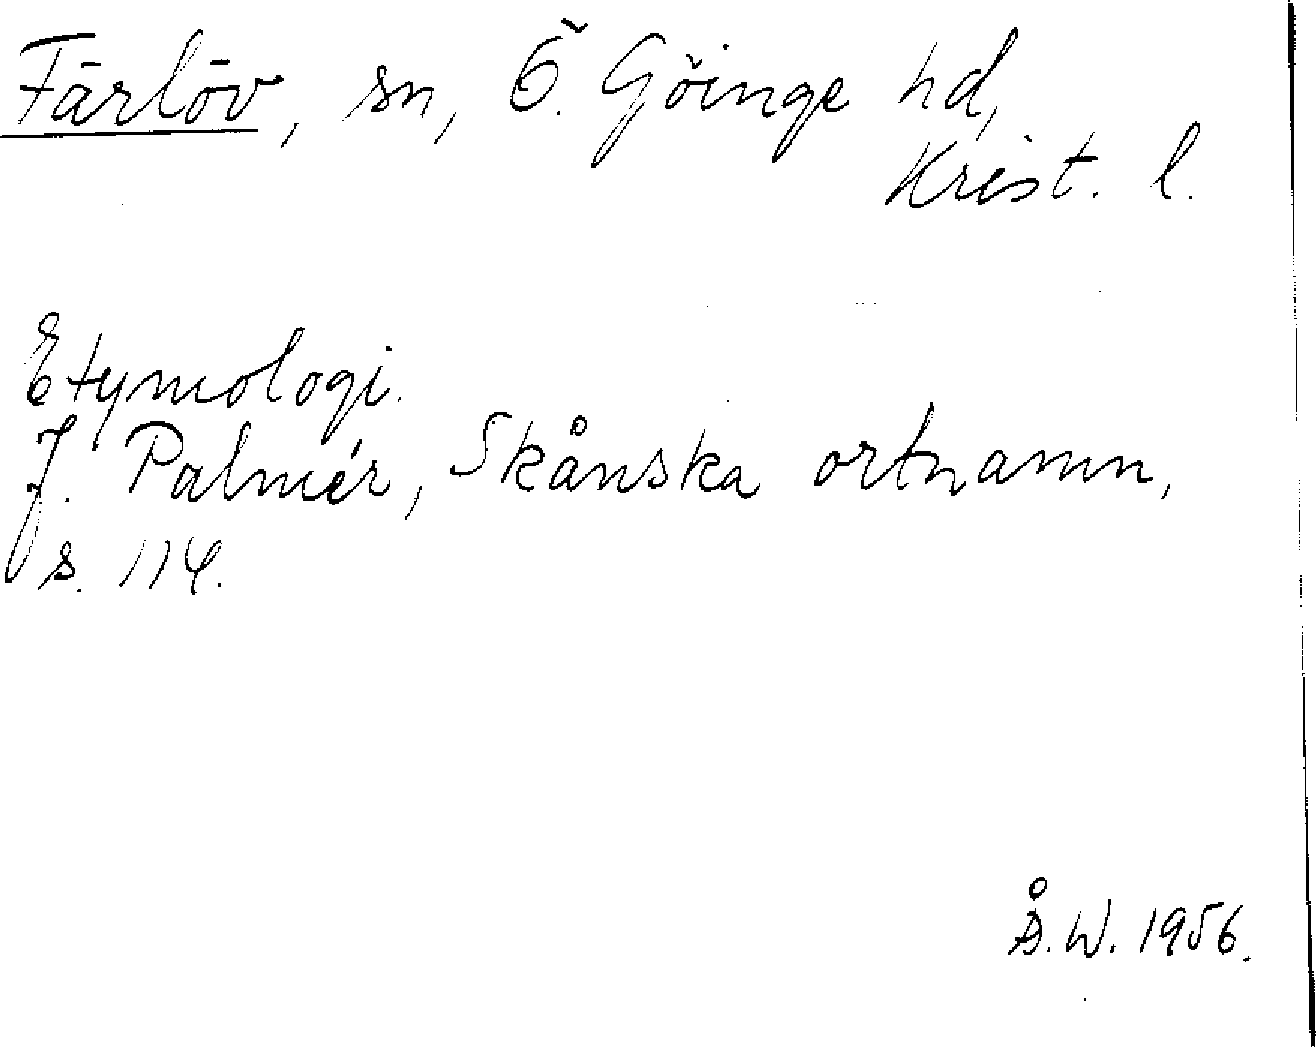 Färlöv, sn, Ö. Göinge hd,
Krist. l.
Etymologi.
J. Palmér, Skånska ortnamn,
s. 114.
Å.W. 1956.